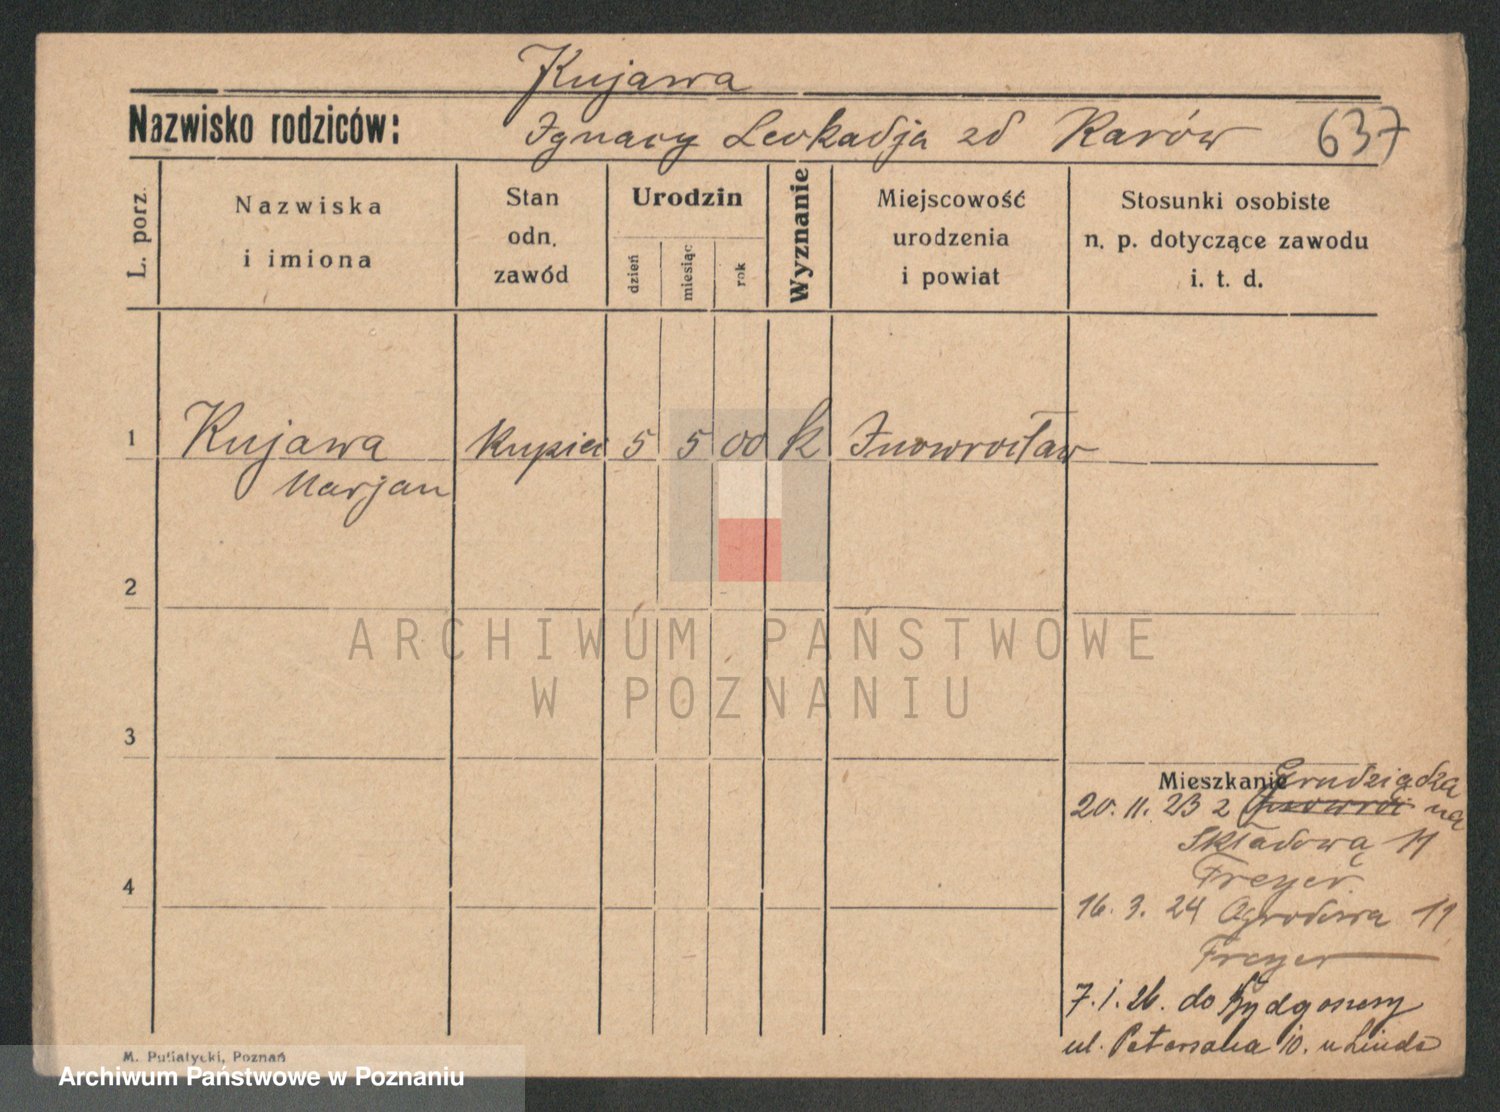 Kujawa
Nazwisko rodziców: Ignacy Leokadja zd Karów 637
L. porz.
Nazwiska
i imiona
Stan
odn.
zawód
Urodzin
dzień
miesiąc
rok
Wyznanie
Miejscowość
urodzenia
i powiat
Stosunki osobiste
n. p. dotyczące zawodu
i. t. d.
1 Kujawa kupiec 5 5 00 k Inowrocław
Marjan
2
ARCHIWUM PAŃSTWOWE
W POZNANIU
3
Mieszkanie Grudziądza
20. 11. 23 z Inowroc na
Składową 11
Freyer.
4
16. 3. 24 Ogrodowa 11
Freyer
7. 1. 26. do Bydgoszczy
ul. Petersona 10. u Linde
M. Putiatycki, Poznań
Archiwum Państwowe w Poznaniu